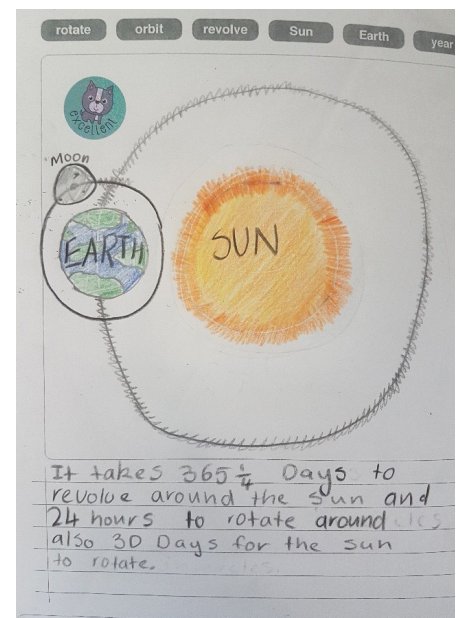 rotate
orbit
revolve
Sun
Earth
year
excellent
Moon
EARTH
SUN
It takes 365 1/4 Days to
revolve around the sun and
24 hours to rotate around
also 30 Days for the sun
to rotate.